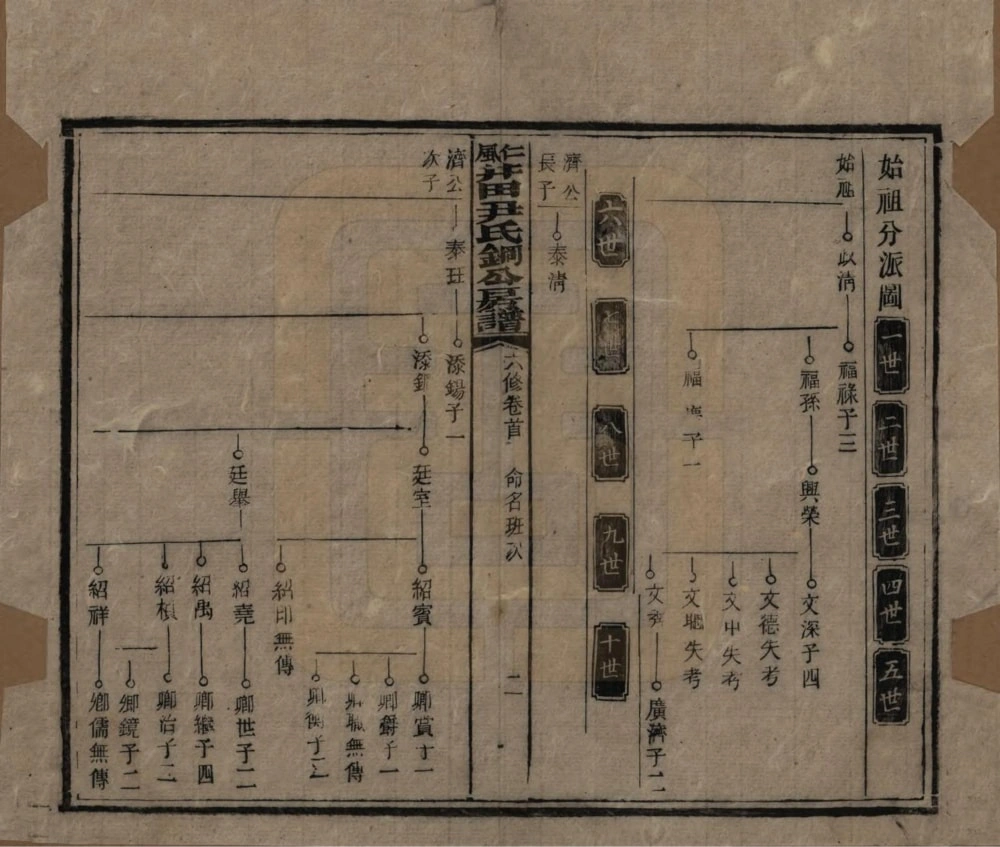 始祖分派圖
一世
二世
三世
四世
五世
始祖
以清
福祿子三
福孫
興榮
文深子四
文德失考
文中失考
福
子一
失考
廣濟子二
六世
七世
八世
九世
十世
濟公
長子
泰清
仁風井田尹氏鋼公房譜
六修卷首
命名班次
二
濟公
次子
添錫子一
添鋼
廷室
紹賓
卿賞子一
卿爵子一
卿職無傳
廷舉
紹印無傳
紹堯
卿世子二
紹禹
卿繼子四
紹楨
卿治子二
卿鏡子二
紹祥
卿儒無傳